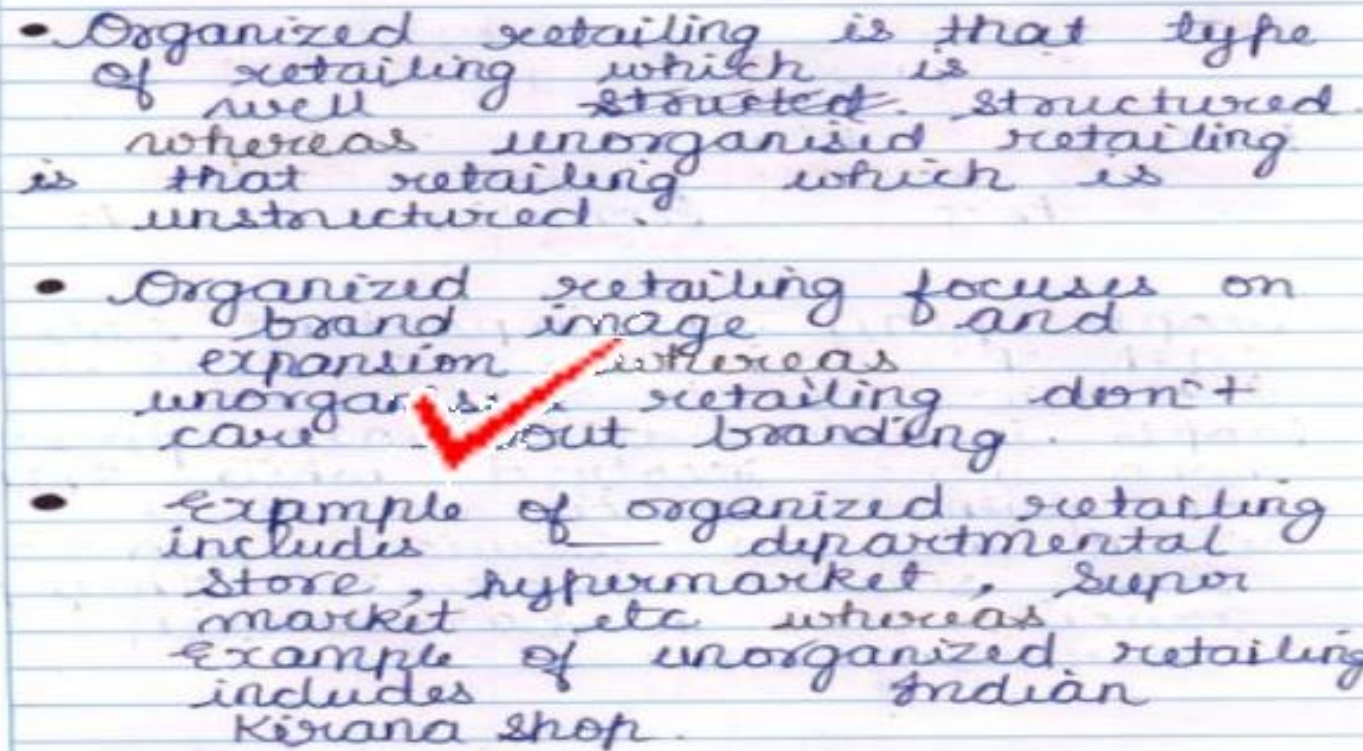 • Organized retailing is that type
of retailing which is
well structed. structured
whereas unorganisid retailing
is that retailing which is
unstructured.
• Organized retailing focuses on
brand image and
expansion whereas
retailing don't
care about branding.
• Example of organized retailing
includes — departmental
store, hypermarket, super
market etc whereas
Example of unorganized retailing
includes Indian
Kirana shop.